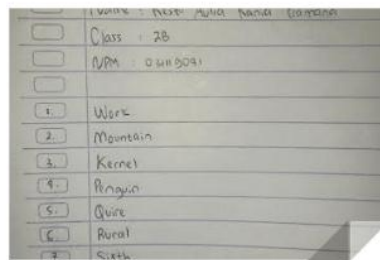 Class : 2B
NPM :
1. Work
2. Mountain
3. Kernel
4. Penguin
5. Quire
6. Rural
7. Sixth